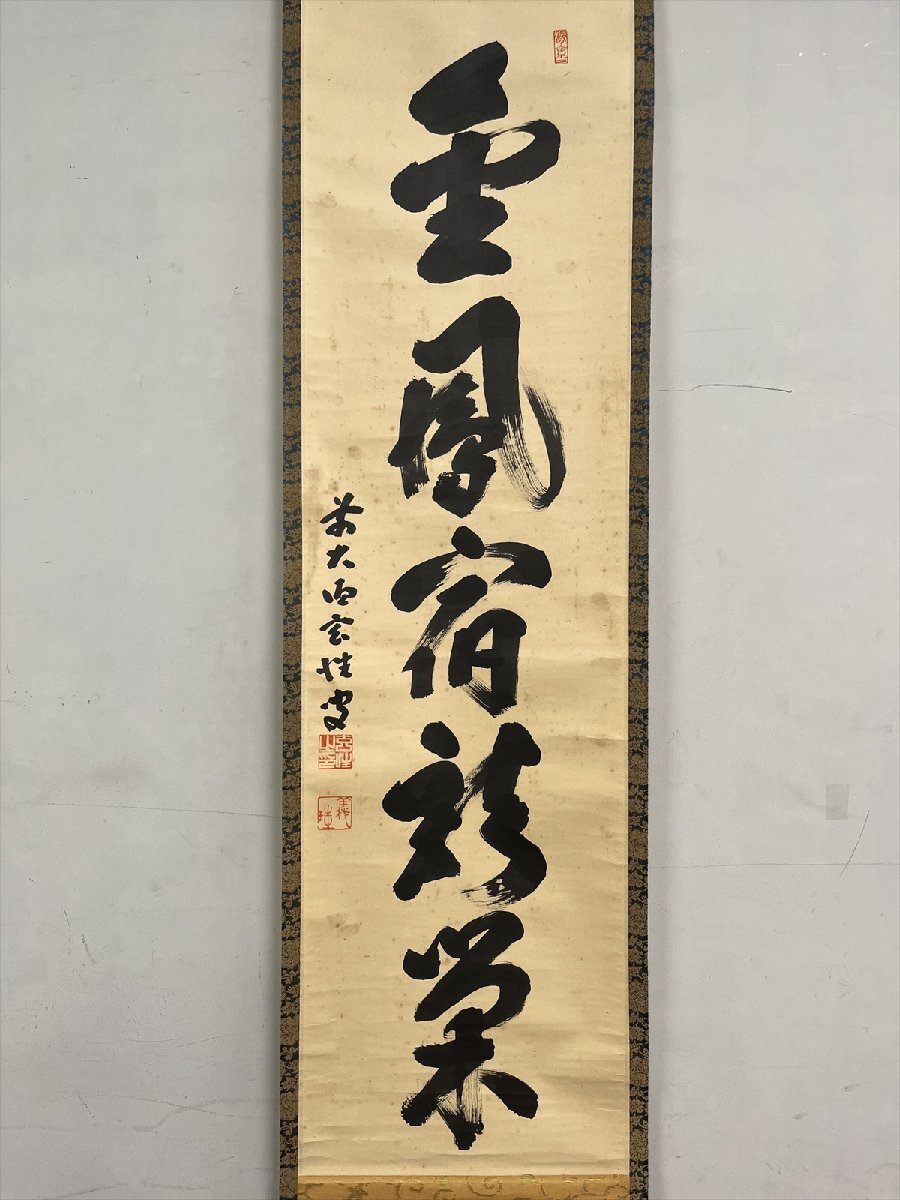 金鳳宿龍巣
前大 玄性叟